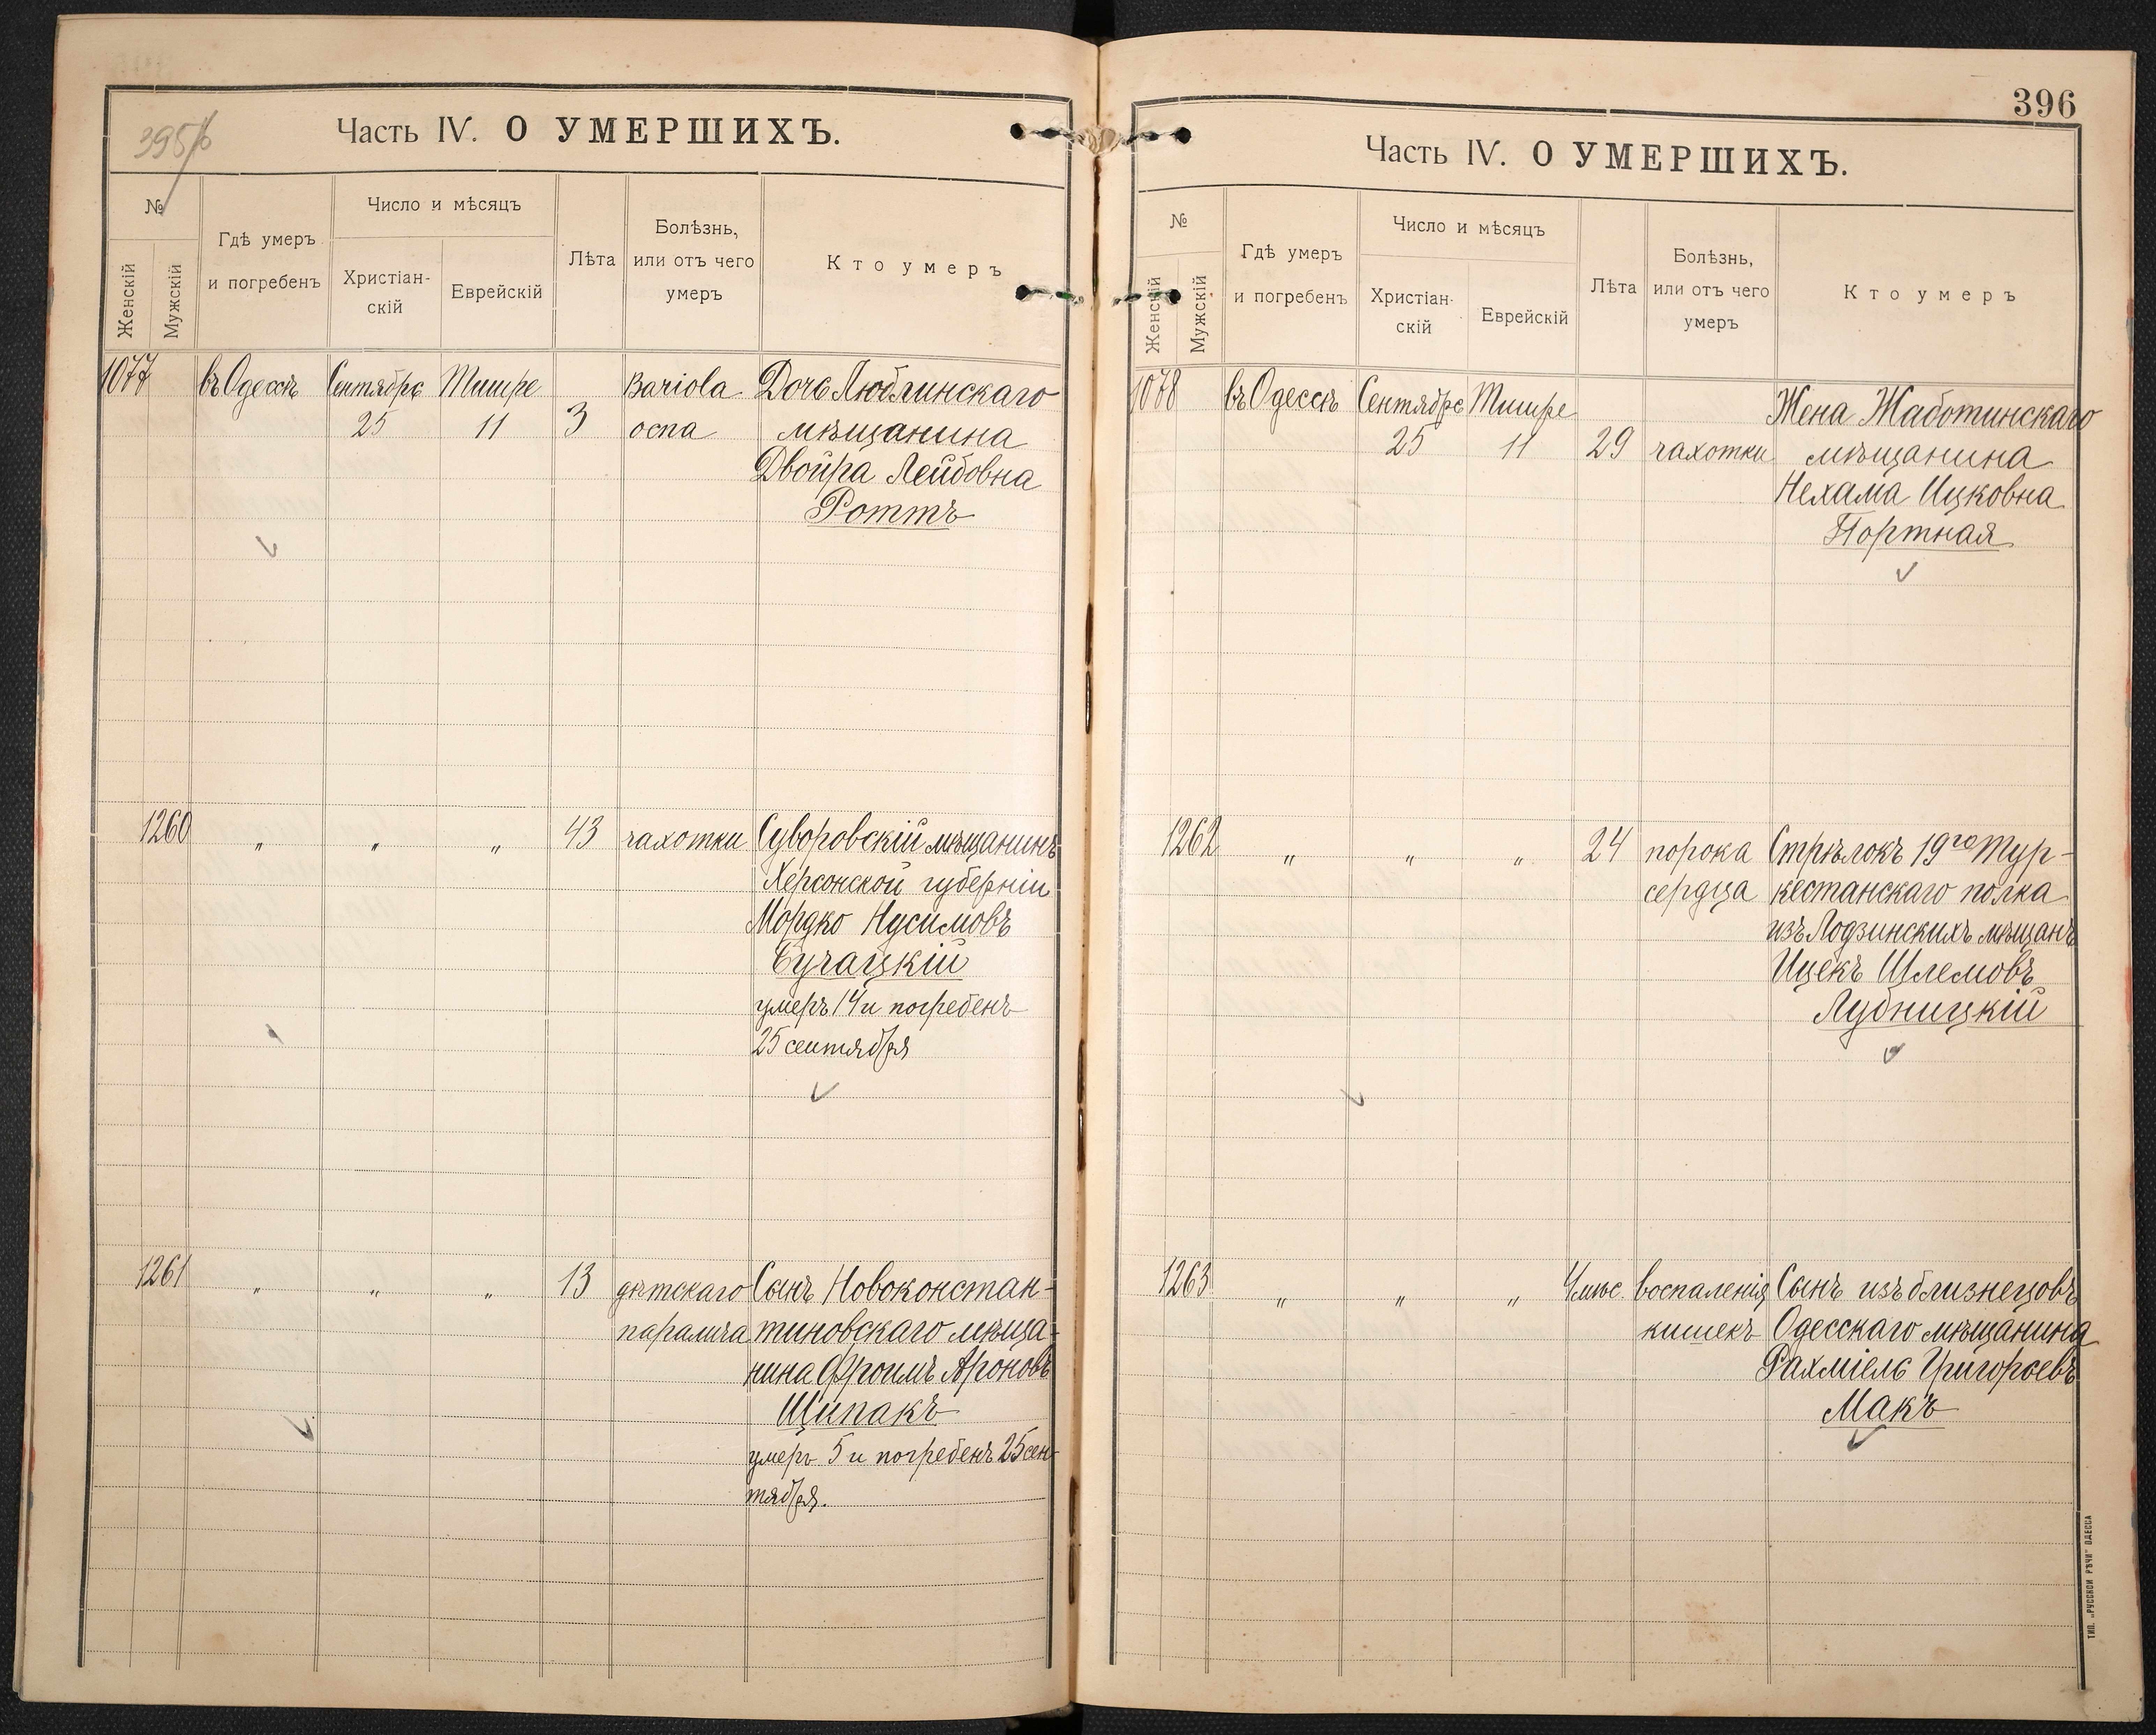 395/б
Часть IV. О УМЕРШИХЪ.
№
Женскій
Мужскій
Гдѣ умеръ
и погребенъ
Число и мѣсяцъ
Христіан-
скій
Еврейскій
Лѣта
Болѣзнь,
или отъ чего
умеръ
Кто умеръ
1077 въ Одессѣ Сентября Тишре Variola Дочь Люблинскаго
25 11 3 оспа мѣщанина
Двойра Лейбовна
Роттъ
1260 " " " 43 чахотки Суворовскій мѣщанинъ
Херсонской губерніи
Мордко Нусимовъ
Бучацкій
умеръ 14 и погребенъ
25 сентября
1261 " " " 13 дѣтскаго Сынъ Новоконстан-
паралича тиновскаго мѣща-
нина Фроимъ Ароновъ
Щипакъ
умеръ 5 и погребенъ 25 сен-
тября.
396
Часть IV. О УМЕРШИХЪ.
№
Женскій
Мужскій
Гдѣ умеръ
и погребенъ
Число и мѣсяцъ
Христіан-
скій
Еврейскій
Лѣта
Болѣзнь,
или отъ чего
умеръ
Кто умеръ
1078 въ Одессѣ Сентября Тишре Жена Жаботинскаго
25 11 29 чахотки мѣщанина
Нехама Ицковна
Портная
1262 " " " 24 порока Стрѣлокъ 19го Тур-
сердца кестанскаго полка
изъ Лодзинскихъ мѣщанъ
Ицекъ Шлемовъ
Лубницкій
1263 " " " 4 мѣс. воспаленія Сынъ изъ близнецовъ
кишекъ Одесскаго мѣщанина
Рахміель Григорьевъ
Макъ
ТИП. „РУССКОЙ РѢЧИ" ОДЕССА